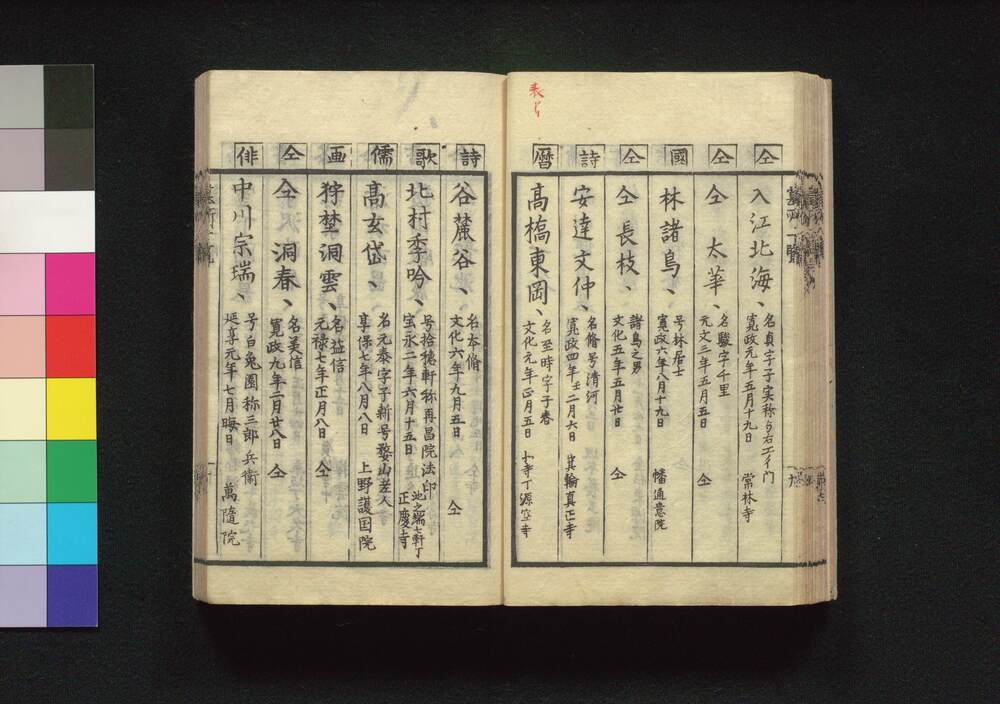 仝
入江北海、
名貞字子実称
寛政元年五月十九日
常林寺
仝
仝 太華、
名駿字千里
元文三年五月五日
仝
國
林諸鳥、
号林居士
寛政六年八月十九日
幡随意院
仝
仝 長枝、
諸鳥之男
文化五年五月廿日
仝
詩
安達文仲、
名脩号清河
寛政四年壬二月六日
箕輪真正寺
暦
高橋東岡、
名至時字子春
文化元年正月五日
源空寺
詩
谷麓谷、
名本脩
文化六年九月五日
仝
歌
北村季吟、
号拾穂軒称再昌院法印
宝永二年六月十五日
池之端七軒丁
正慶寺
儒
高玄岱、
名元泰字子新号婺山老人
享保七年八月八日
上野護国院
画
狩埜洞雲、
名益信
元禄七年正月八日
仝
仝
仝 洞春、
名美信
寛政九年二月廿八日
仝
俳
中川宗瑞、
号白兎園称三郎兵衛
延享元年七月晦日
萬隨院